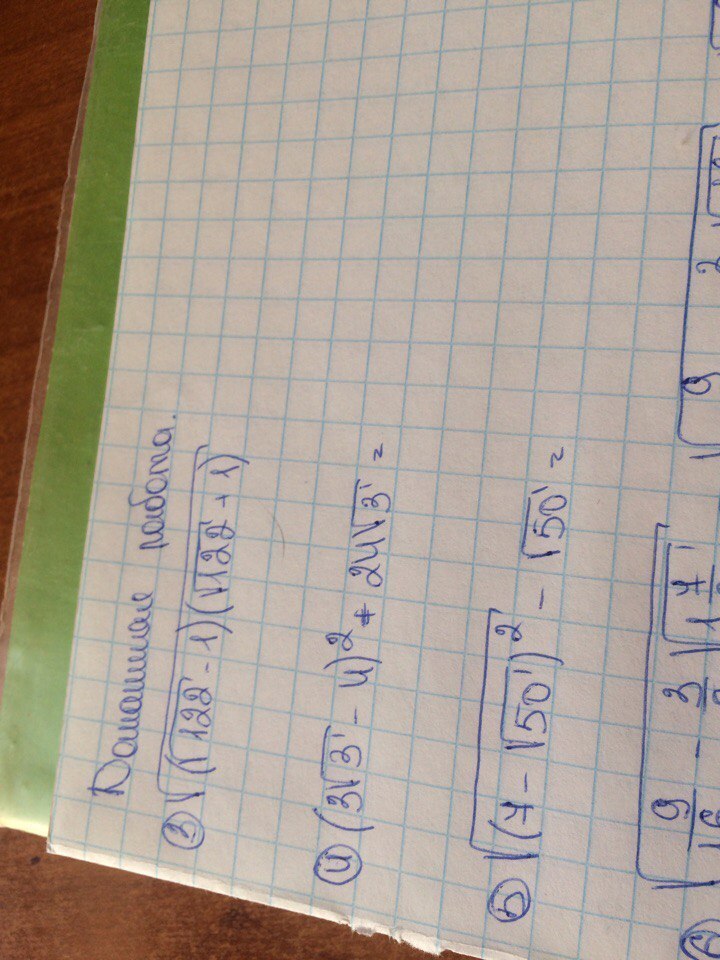 Домашняя работа.
③ √((√122 - 1)(√122 + 1)
④ (3√3 - 4)² + 24√3 =
⑤ √(7 - √50)² - √50 =